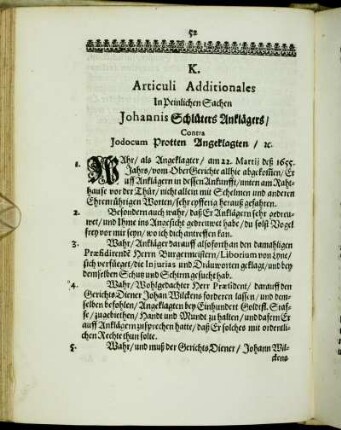 52
K.
Articuli Additionales
In Peinlichen Sachen
Johannis Schlüters Anklägers/
Contra
Jodocum Protten Angeklagten / ꝛc.
1. WAhr/ als Angeklagter/ am 22. Martij deß 1655.
Jahrs/ vom OberGerichte allhie abgekosten/ Er
auff Anklägern in dessen Ankunfft/ unten am Raht-
hause vor der Thür/ nicht allein mit Schelmen und anderen
Ehrenrührigen Worten/ sehr epfferig herauß gefahren.
2. Besondern auch wahr/ daß Er Anklägern sehr bedrew-
wet/ und Ihme ins Angesicht gedrewet habe/ du solst Vogel
frey vor mir seyn/ wo ich dich antreffen kan.
3. Wahr/ Ankläger darauff alsoforth an den damahligen
Præsidirende Herrn Burgermeistern/ Liborium von Lyne/
sich verfüget/ die Injurias und Dräuworten geklagt/ und bey
demselben Schutz und Schirm gesucht hab.
4. Wahr/ Wohlgedachter Herr Præsident/ darauff den
Gerichts Diener Johan Wilckens forderen lassen/ und dem-
selben befohlen/ Angeklagten bey Einhundert Goldtfl. Straf-
fe/ zugebiethen/ Handt und Mundt zu halten/ und dafern Er
auff Anklägern zusprechen hatte/ daß Er solches mit ordentli-
chen Rechte thun solte.
5. Wahr/ und muß der Gerichts Diener/ Johann Wil-
ckens